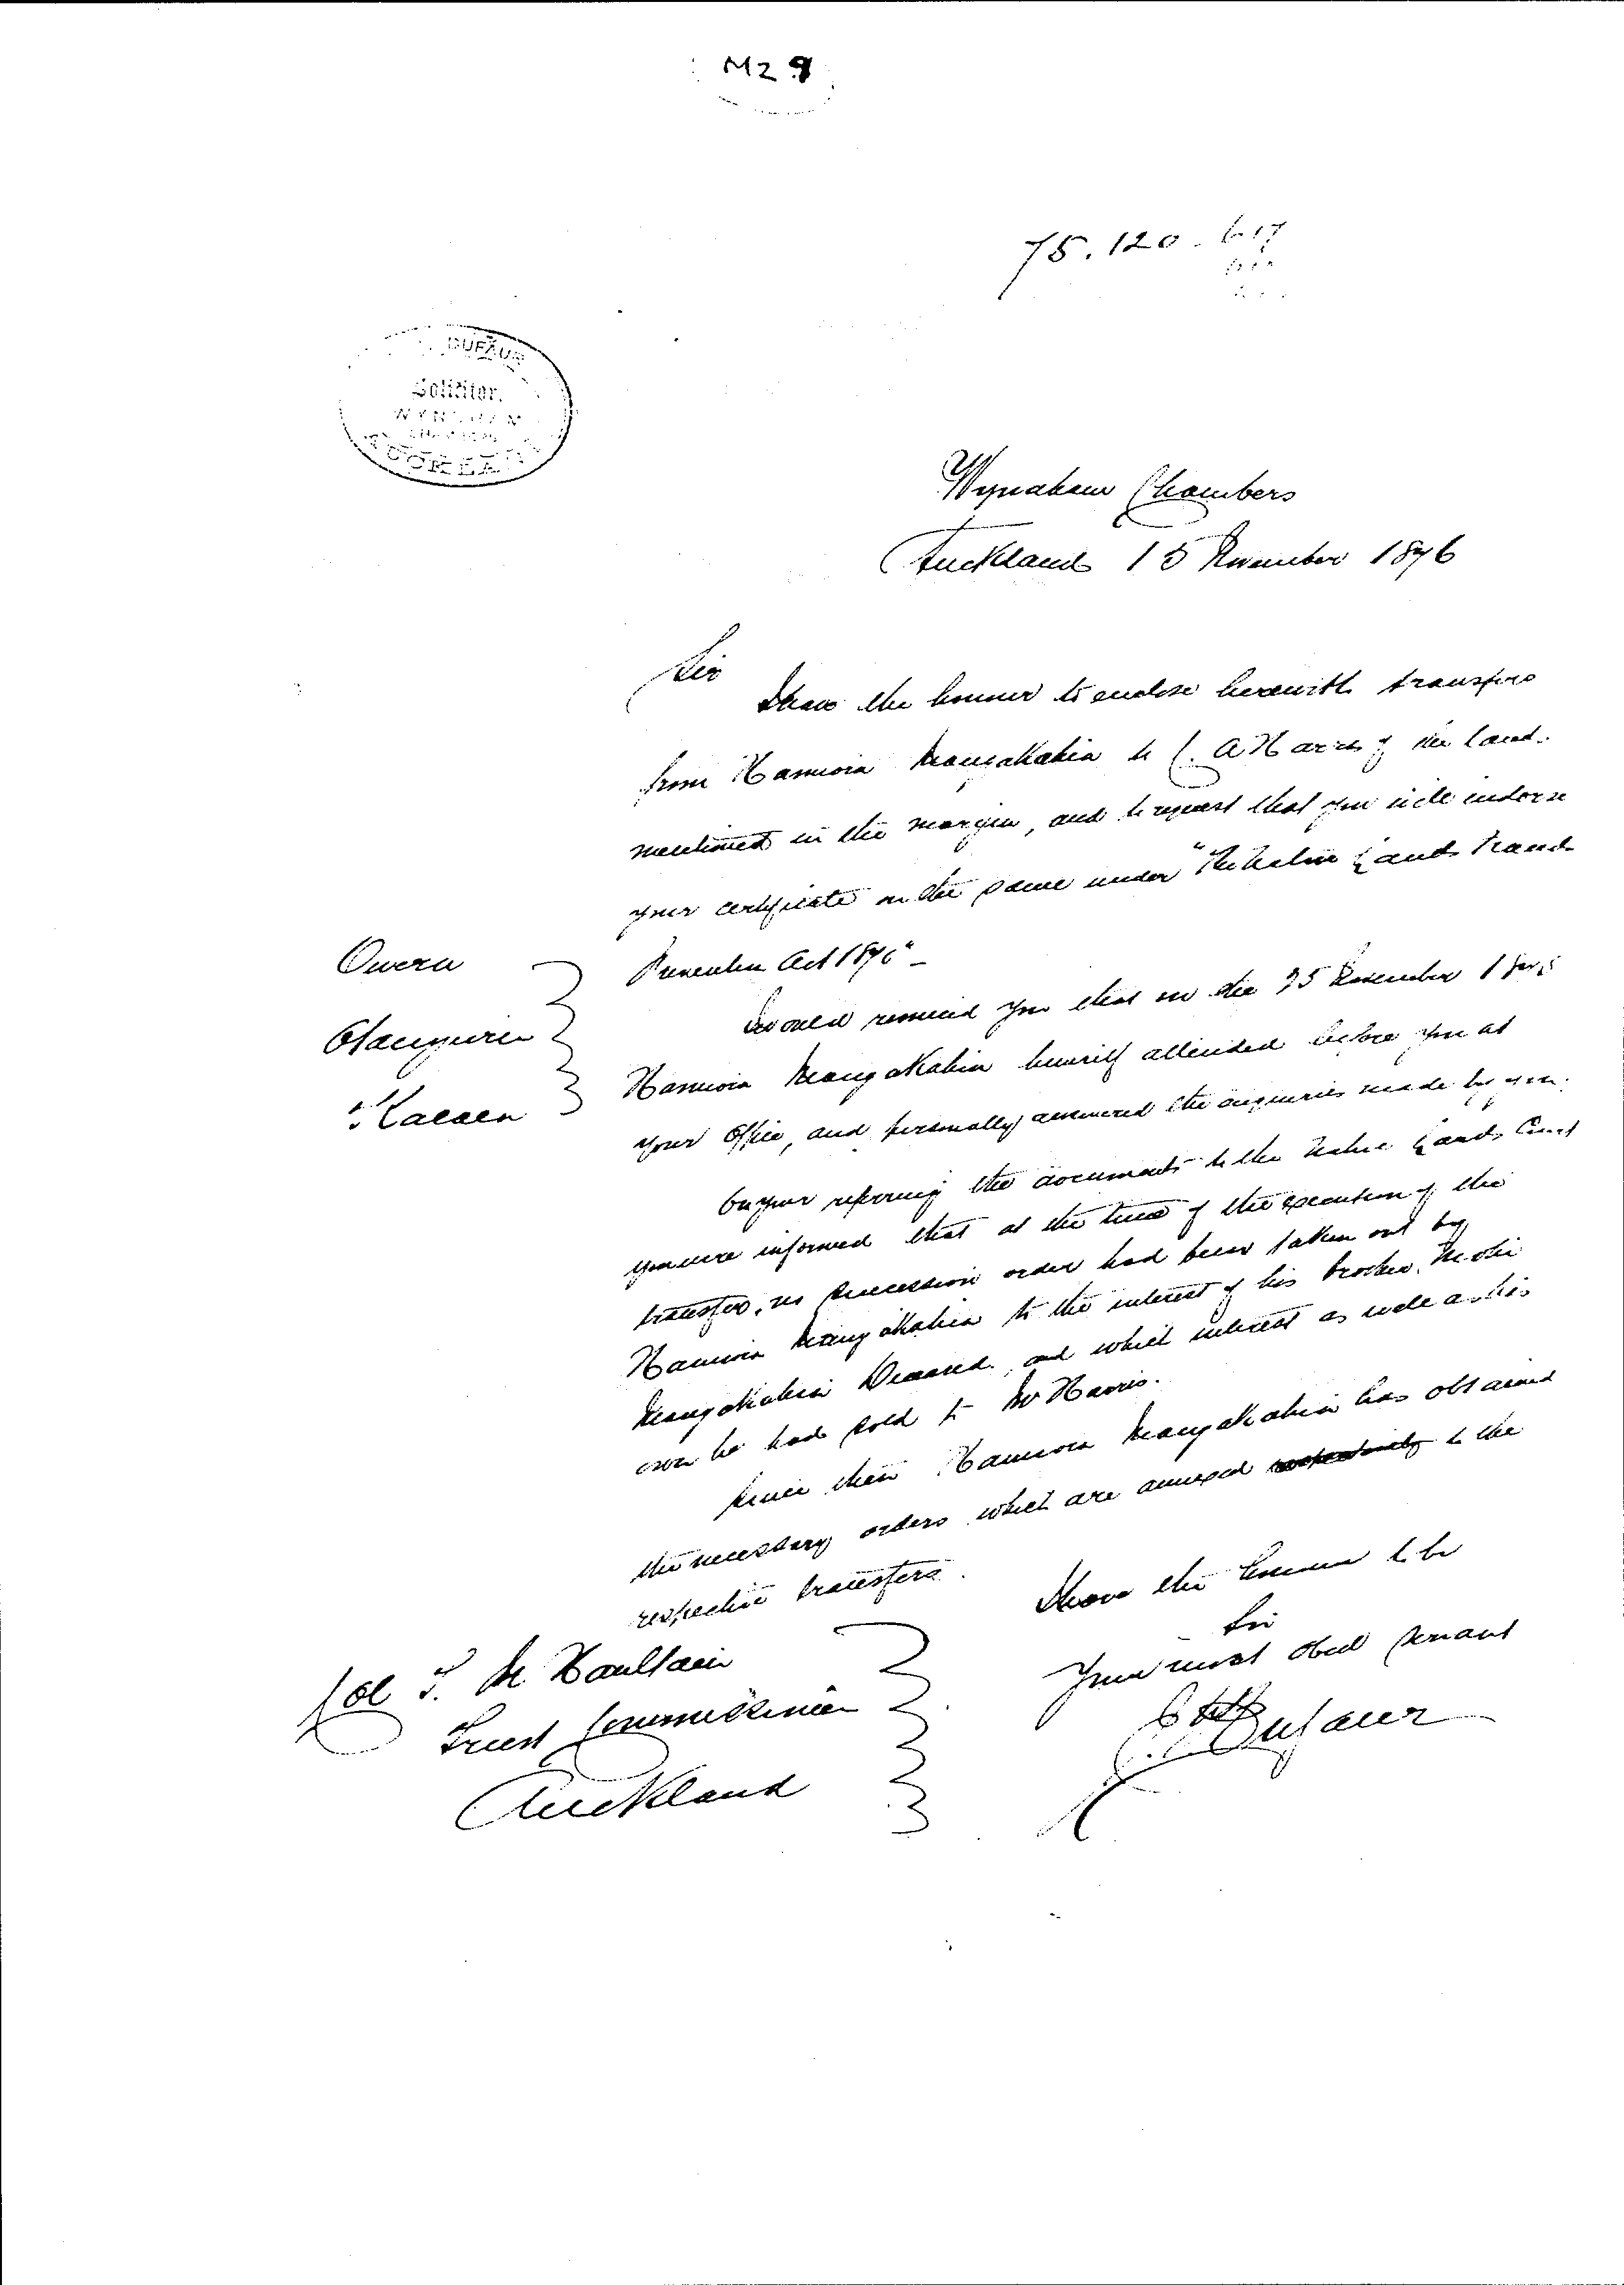 M29
75.120.
DUFAUR
Solicitor.
Wyndham Chambers
Auckland 15 November 1876
Sir
I have the honour to enclose herewith transfers
from Hamiora Mangakahia to C. A Harris of the land
mentioned in the margin, and to request that you will indorse
your certificate on the same under "The Native Lands Frauds
Owera
Prevention Act 187 " –
I would remind you that on the 25 November 187
Otanguru
Hamiora Mangakahia himself attended before you at
Kaeaea
your Office, and personally answered the inquiries made by you.
On your referring the documents to the Native Lands Court
you were informed that at the time of the execution of the
transfers, no succession order had been taken out by
Hamiora Mangakahia to the interest of his brother Mohi
Mangakahia Deceased, and which interest as well as his
own he had sold to Mr Harris.
Since then Hamiora Mangakahia has obtained
the necessary orders which are annexed respectively to the
respective transfers.
I have the honour to be
Sir
Your most obed servant
Dufaur
Col T. M. Haultain
Trust Commissioner
Auckland